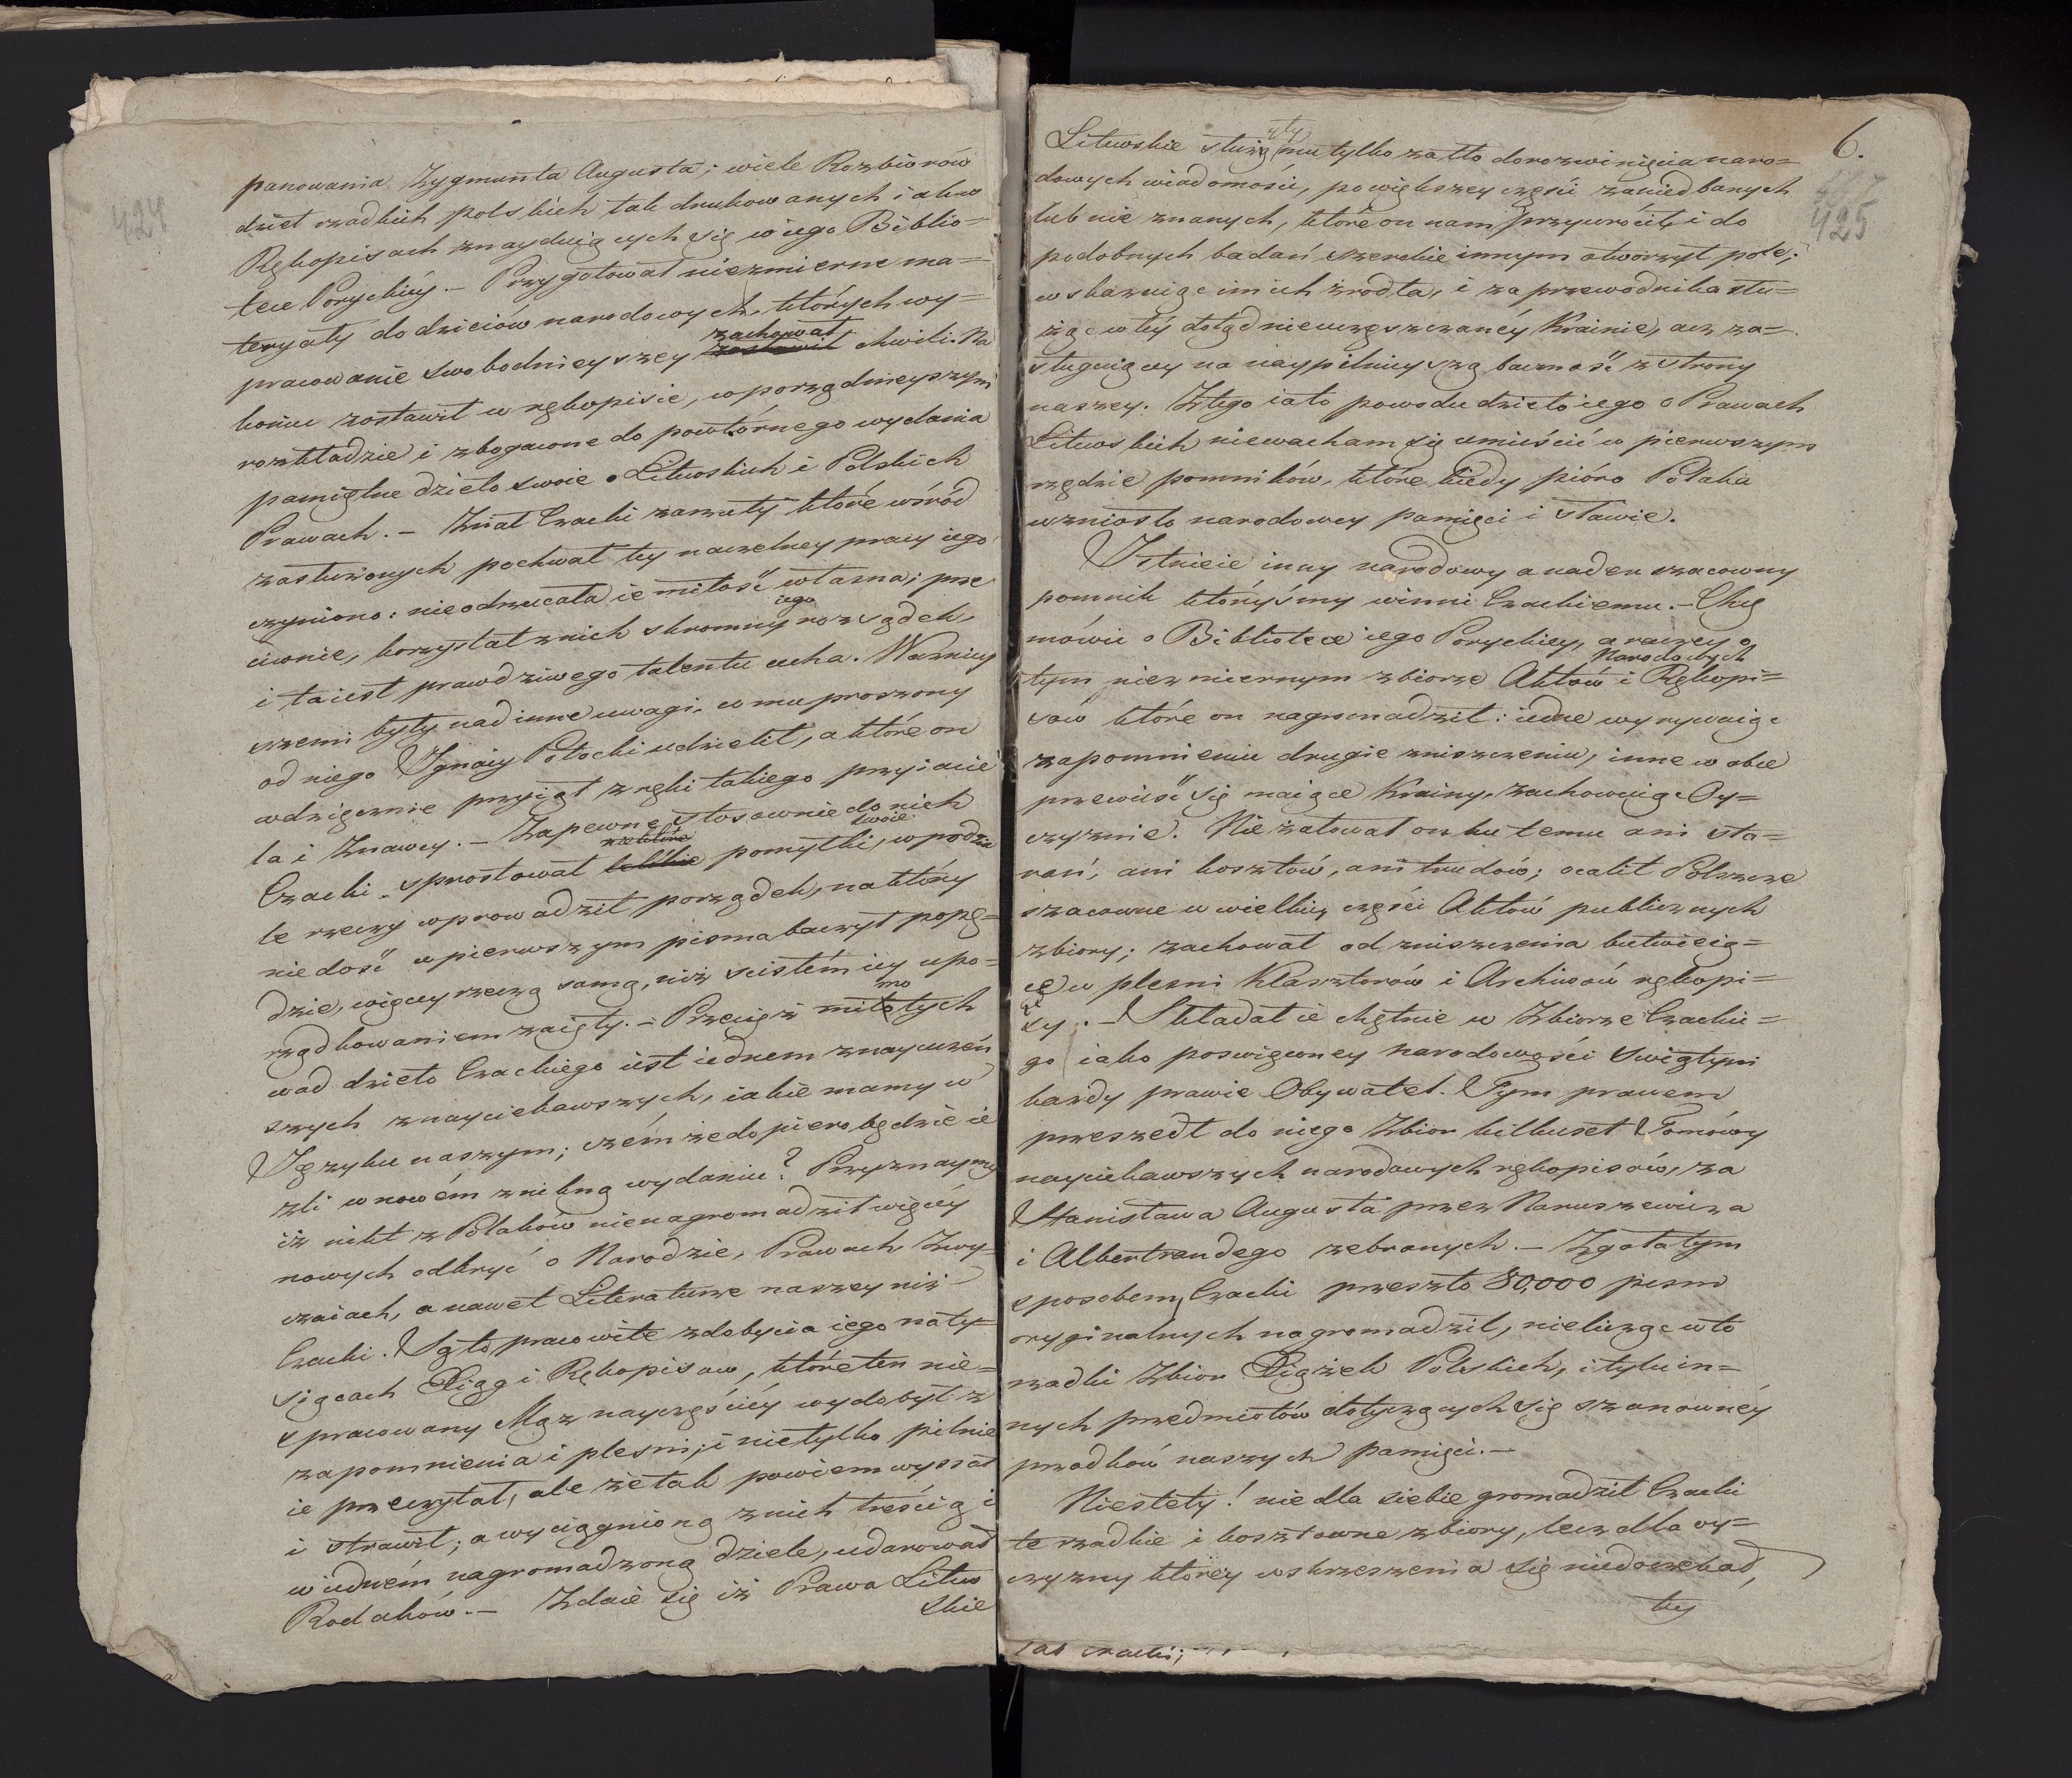 424
panowania Zygmunta Augusta; wiele Rozbiorów
dzieł rzadkich polskich tak drukowanych i akw
Rękopisach znayduiących się w iego Biblio=
tece Poryckiéy. – Przygotował niezmierne ma=
teryały do dzieiów narodowych, których wy=
zachował
pracowanie swobodnieyszey zostawił chwili. Na
końcu zostawił w rękopisie, w porządnieyszym
rozkładzie i zbogacone do powtórnego wydania
pamiętne dzieło swoie o Litewskich i Polskich
Prawach. – Znał Czacki zarzuty które wśród
zasłużonych pochwał tey naczelney pracy iego
czyniono: nieodrzucała ie miłość własna; prze
iego
ciwnie, korzystał z nich skromny rozsądek,
i ta iest prawdziwego talentu cecha. Ważniey
szemi były nad inne uwagi, co mu proszony
od niego Ignacy Potocki udzielił, a które on
wdzięcznie przyiął z ręki takiego przyiacie
la i Znawcy. – Zapewne stosownie do nich
niektóre swoie
Czacki sprostował lekkie pomyłki, w podzia
le rzeczy wprowadził porządek, na który
nie dość w pierwszym pisma baczył popę=
dzie, więcey rzeczą samą, niż scisłém iey upo=
rządkowaniem zaięty. – Przecięż mimo tych
wad dzieło Czackiego iest iednem z nayuczeń
szych z nayciekawszych, iakie mamy w
Języku naszym; czémże dopiero będzie ie
żli w nowém zniknną wydaniu? Przyznaymy
iż nikt z Polaków nienagromadził więcéy
nowych odkryć o Narodzie, Prawach, Zwy=
czaiach, a nawet Literaturze naszey niż
Czacki. Są to pracowite zdobycia iego na ty=
siącach Xiąg i Rękopisow, które ten nie=
spracowany Mąż nayczęściéy wydobył z
zapomnienia i plesni; i nietylko pilnie
ie przeczytał, ale że tak powiem wyssał
i strawił; a wyciągnioną z nich treścią i
w iedném nagromadzoną dziele, udarował
Rodaków. – Zdaie się iż Prawa Litew
skie
6.
425
Litewskie służyły mu tylko za tło do rozwinięcia naro=
dowych wiadomości, po większey części zaniedbanych
lub nie znanych, które on nam przywrócił, i do
podobnych badań szerokie innym otworzył pole;
wskazuiąc im ich żrodła, i za przewodnika słu=
żąc w téy dotąd nieuczęszczanéy Krainie, acz za=
sługuiącey na naypilnieyszą baczność z strony
naszey. Z tego iato powodu dzieło iego o Prawach
Litewskich niewacham się umieścić w pierwszym
rzędzie pomników, które kiedy pióro Polaka
wzniosło narodowey pamięci i sławie.
Istnieie inny narodowy a nader szacowny
pomnik któryśmy winni Czackiemu. – Chcę
mówić o Bibliotece iego Poryckiey, a raczey o
Narodowych
tym niezmiernym zbiorze Aktów i Rękopi=
sów które on nagromadził: iedne wyrywaiąc
zapomnieniu drugie zniszczeniu, inne w obce
przewieść się maiące Krainy, zachowuiąc Oy=
czyznie. Nie żałował on ku temu ani sta=
rań, ani kosztów, ani trudów; ocalił Polszcze
szacowne w wielkiey części Aktów publicznych
zbiory; zachował od zniszczenia butwieią=
ce w plesni Klasztorów i Archiwów rękopi=
sy. – Składał ie chętnie w Zbiorze Czackie=
go iako poswięconey narodowości Swiątyni
każdy prawie Obywatel. Tym prawem
przeszedł do niego Zbior kilkuset Tomów
nayciekawszych narodowych rękopisów, za
Stanisława Augusta przez Naruszewicza
i Albertrandego zebranych. – Zgoła tym
sposobem, Czacki przeszło 80,000 pism
oryginalnych nagromadził, nielicząc w to
rzadki Zbior Xiążek Polskich, i tylu in=
nych przedmiotów dotyczących się szanownéy
przodków naszych pamięci. –
Niestety! nie dla siebie gromadził Czacki
te rzadkie i kosztowne zbiory, lecz dla oy=
czyzny któréy wskrzeszenia się niedoczekał,
tey